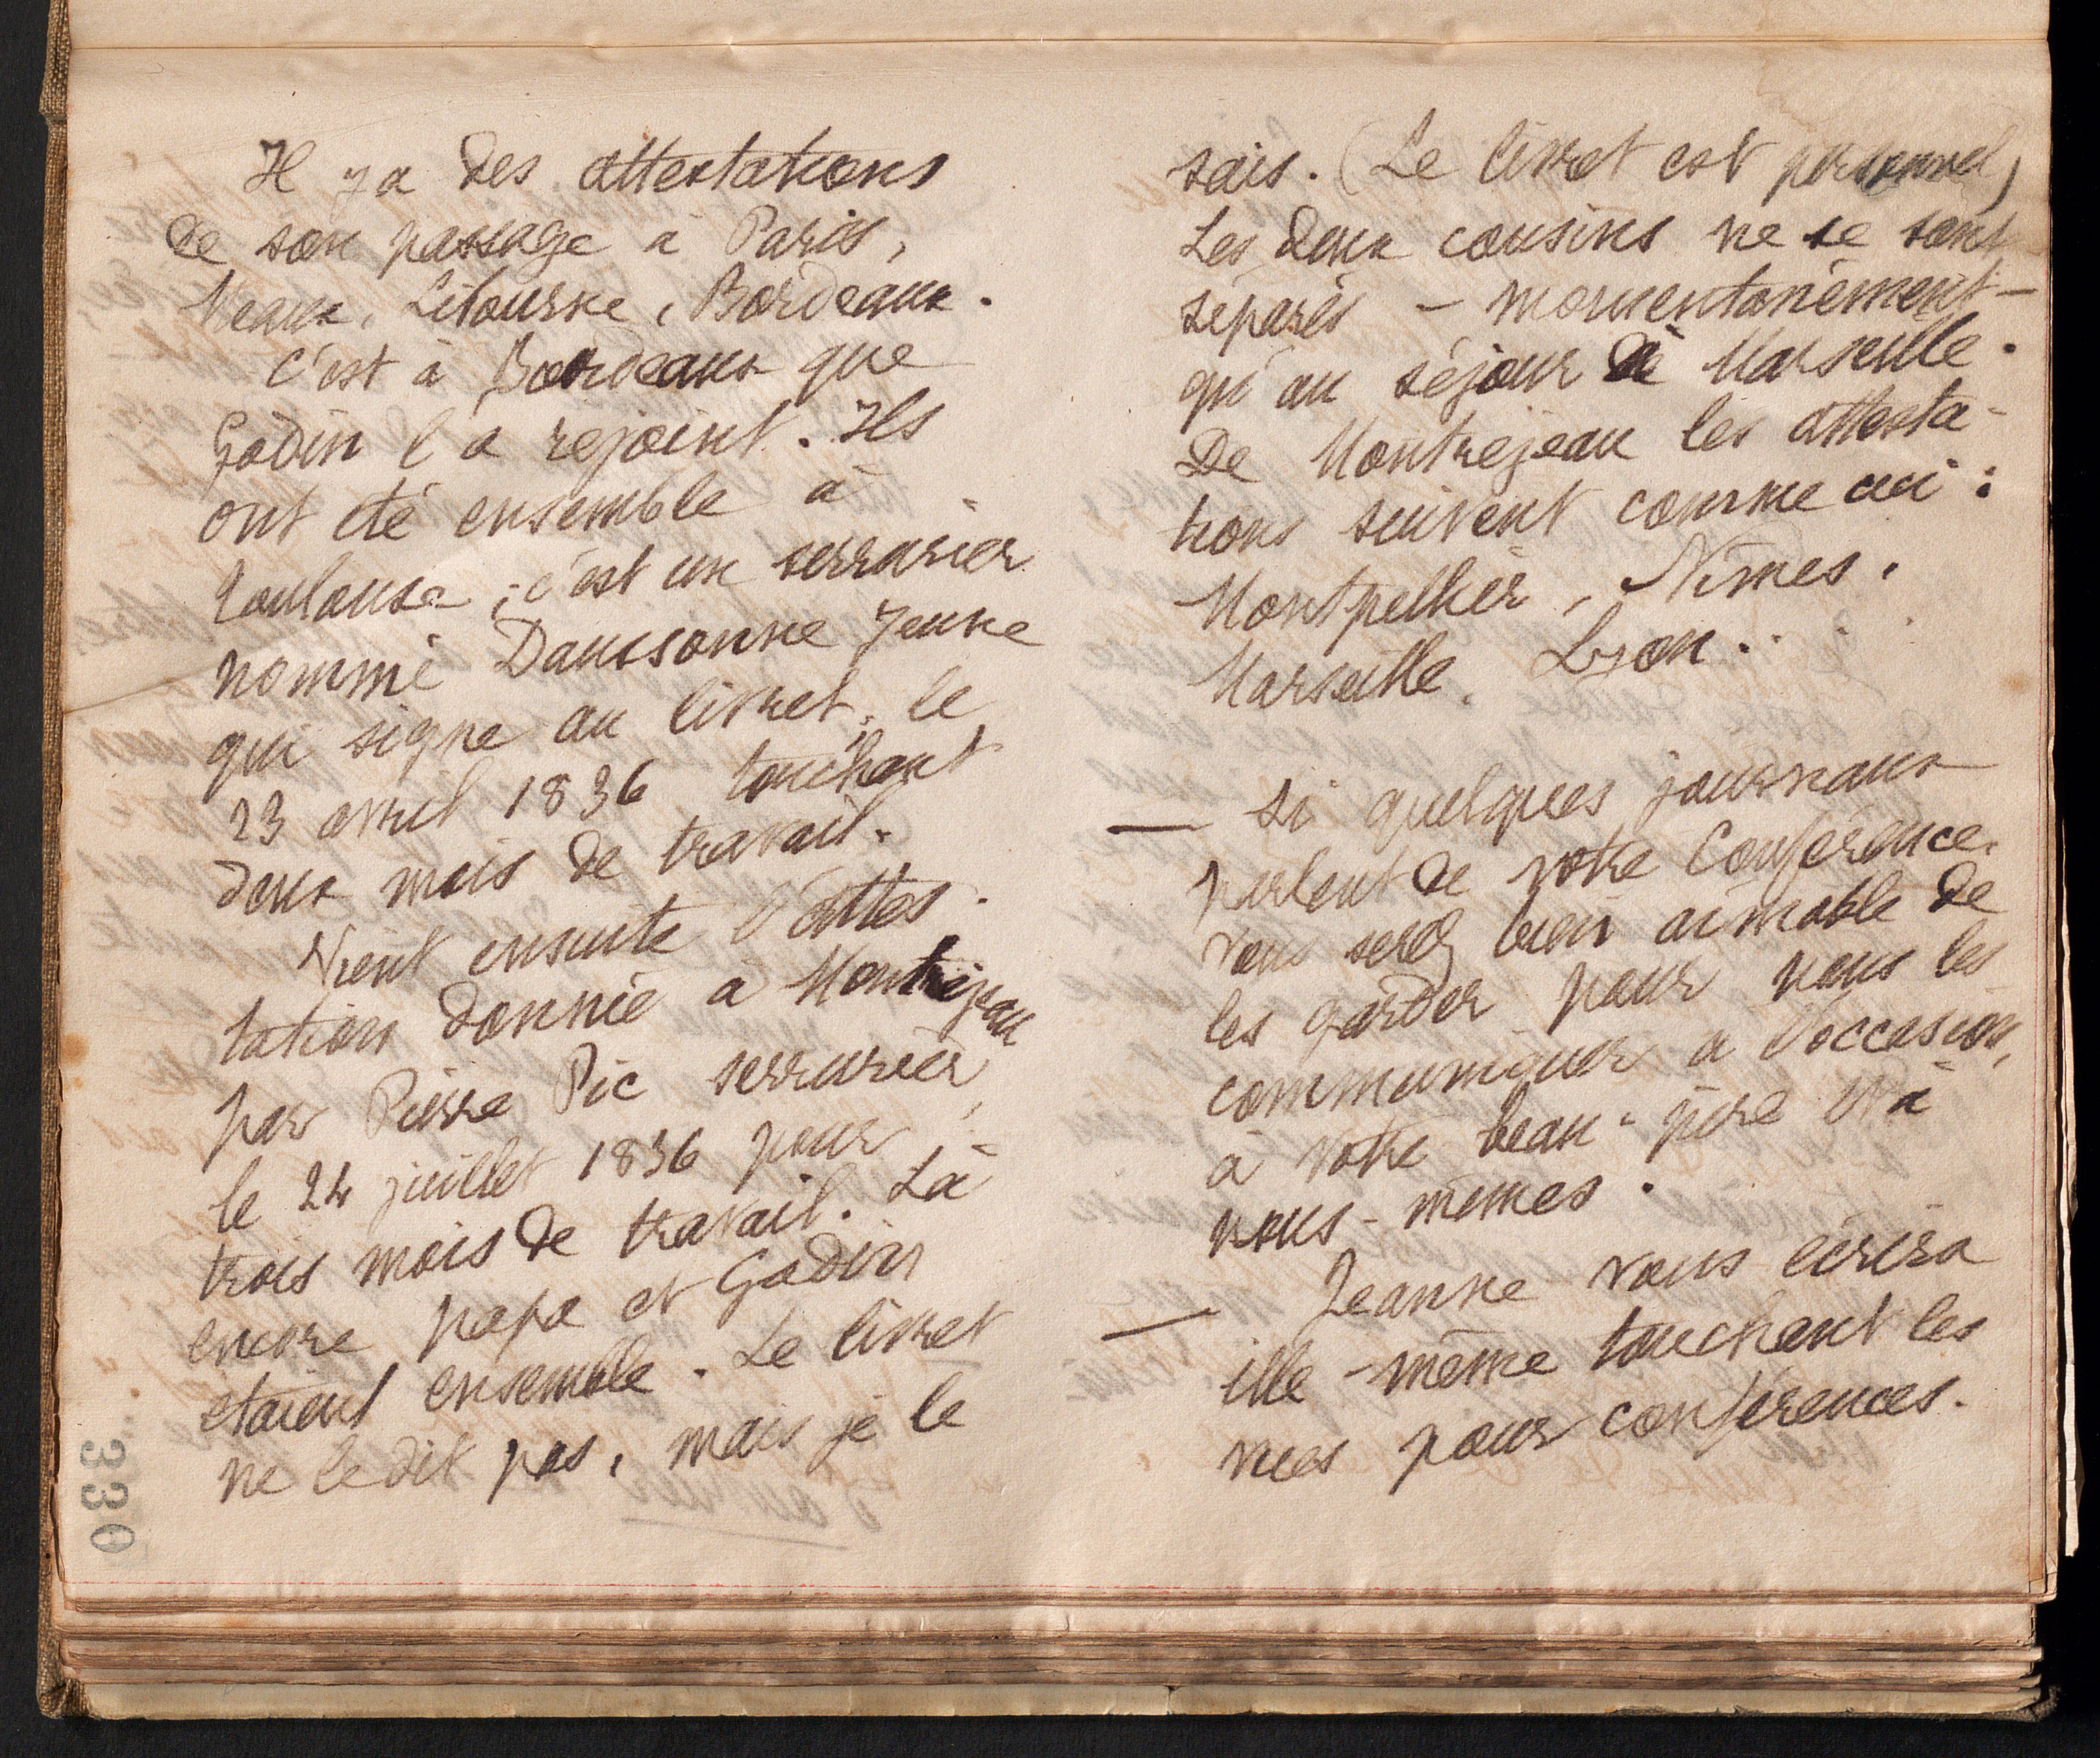 Il y a des attestations
de son passage à Paris,
Meaux, Libourne, Bordeaux.
C'est à Bordeaux que
Godin l'a rejoint. Ils
ont été ensemble à
Toulouse ; c'est un serrurier
nommé Daussonne Jeune
qui signe au livret, le
23 avril 1836 touchant
deux mois de travail.
Vient ensuite l'attes-
tation donnée à Montréjeau
par Pierre Pic serrurier,
le 24 juillet 1836 pour
trois mois de travail. Là
encore papa et Godin
étaient ensemble. Le livret
ne le dit pas, mais je le
330
sais. (Le livret est personnel)
Les deux cousins ne se sont
séparés - momentanément -
qu'au séjour de Marseille.
De Montrejeau les attesta-
tions suivent comme ceci :
Montpellier, Nîmes,
Marseille, Lyon..
— Si quelques journaux
parlent de votre Conférence,
vous serez bien aimable de
les garder pour nous les
communiquer à l'occasion,
à votre beau-père et à
nous-mêmes.
— Jeanne vous écrira
elle-même touchant les
vues pour conférences.